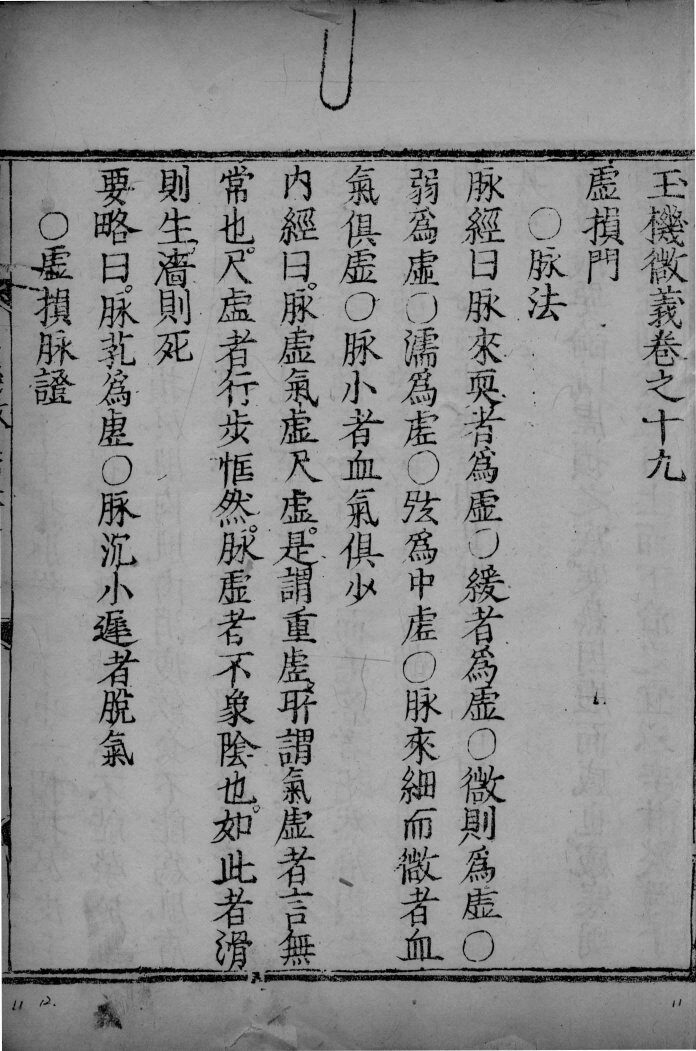 玉機微義卷之十九
虛損門
○脉法
脉經曰脉來耎者爲虛○緩者爲虛○微則爲虛○
弱爲虛○濡爲虛○弦爲中虛○脉來細而微者血
氣俱虛○脉小者血氣俱少
內經曰脉虛氣虛尺虛是謂重虛所謂氣虛者言無
常也尺虛者行步恇然脉虛者不象陰也如此者滑
則生濇則死
要略曰脉芤爲虛○脉沉小遲者脫氣
○虛損脉證
11
12.
11